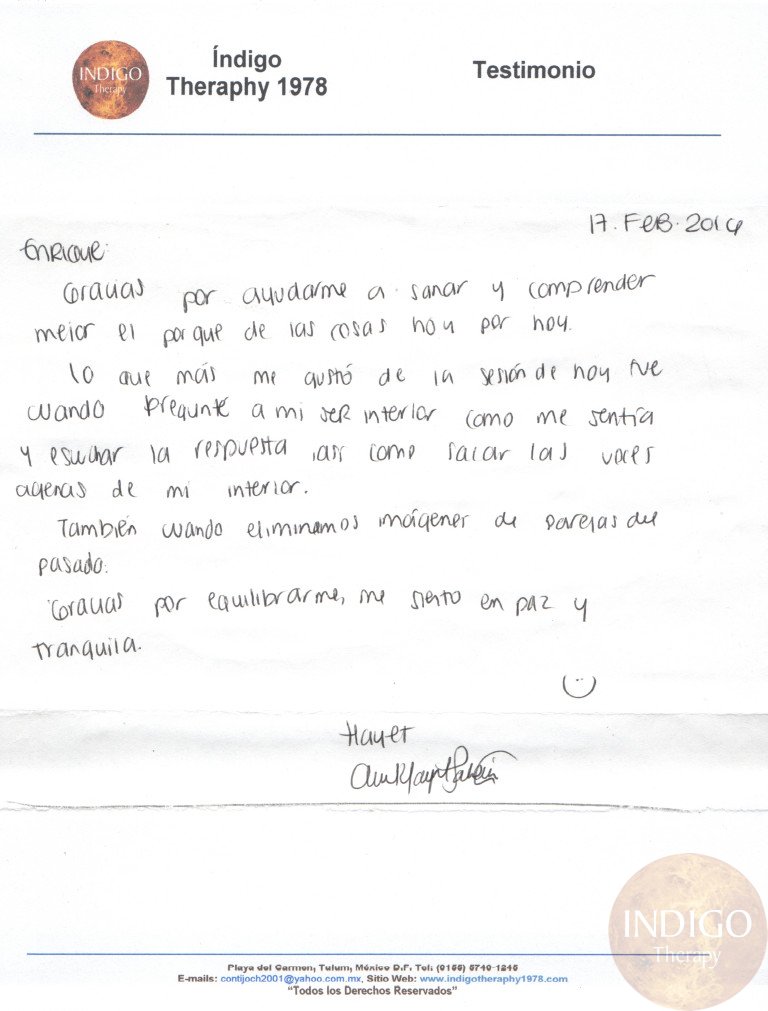 INDIGO
Therapy
Índigo
Theraphy 1978
Testimonio
17. FEB. 2014
ENRIQUE:
Gracias por ayudarme a sanar y comprender
mejor el porque de las cosas hoy por hoy.
lo que más me gustó de la sesión de hoy fue
cuando pregunté a mi ser interior como me sentía
y escuchar la respuesta, así como sacar las voces
agenas de mi interior.
También cuando eliminamos imágenes de parejas del
pasado.
Gracias por equilibrarme, me siento en paz y
tranquila.
Hayet
INDIGO
Therapy
Playa del Carmen, Tulum, México D.F. Tel: (0155) 5740-1245
E-mails: contijoch2001@yahoo.com.mx, Sitio Web: www.indigotheraphy1978.com
"Todos los Derechos Reservados"